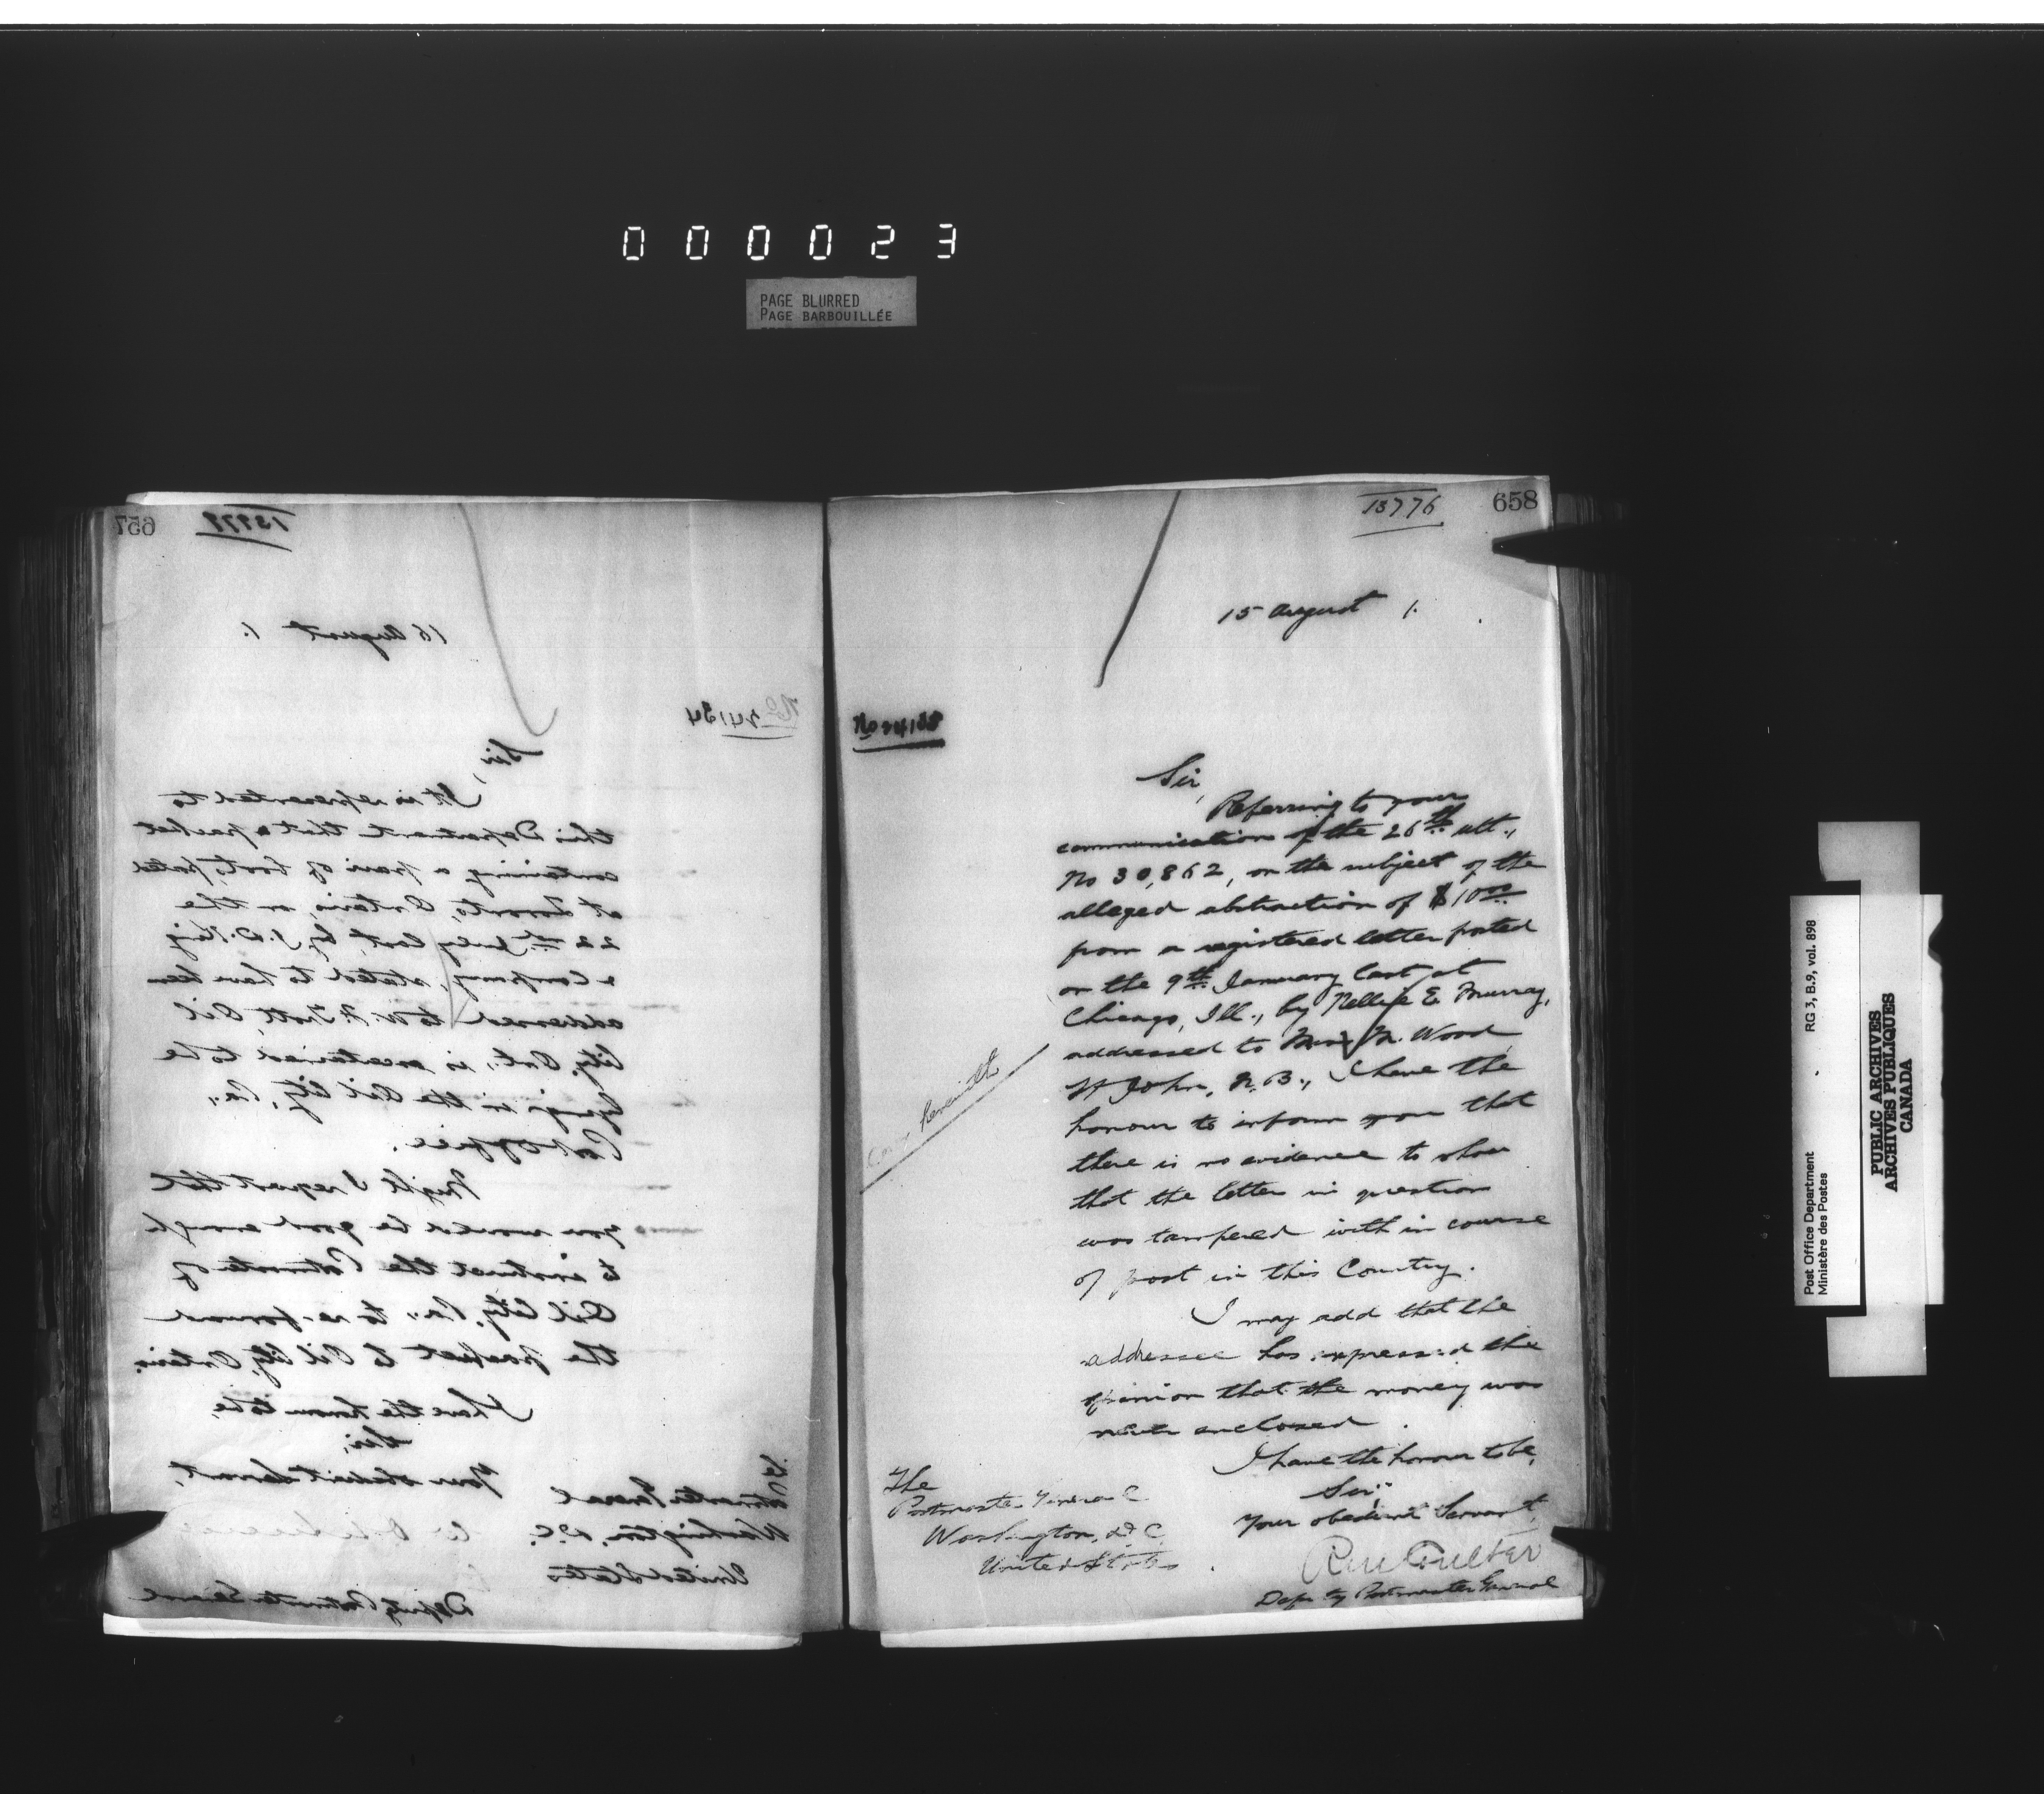 000023
PAGE BLURRED
PAGE BARBOUILLÉE
657
16 August 1.
No 24134
Sir,
It is represented to
this Department that a packet
containing a pair of boots, posted
at Toronto, Ontario, on the
22nd July last, by J. D. King
& Company, stated to have been
addressed to W. H. Trott, Oil
City, Ont., is ascertained to be
lying in the Oil City, Pa.,
Post Office.
Might I request that
you would be good enough
to instruct the Postmaster of
Oil City, Pa., to re-forward
the packet to Oil City, Ontario.
I have the honour to be,
Sir,
Your obedient Servant,
Postmaster General
Washington, D.C.
United States
Deputy Postmaster General
13776
658
15 August 1.
Sir,
Referring to your
communication of the 26th ult.,
No 30,862, on the subject of the
alleged abstraction of $10.00
from a registered letter posted
on the 9th January last at
Chicago, Ill., by Nellie E. Murray,
addressed to M. Wood
St John, N.B., I have the
honour to inform you that
there is no evidence to show
that the letter in question
was tampered with in course
of post in this Country.
I may add that the
addressee has expressed the
opinion that the money was
never enclosed.
I have the honour to be,
Sir,
Your obedient Servant,
RM Coulter
Deputy Postmaster General
herewith
The
Postmaster General
Washington, D.C.
United States.
RG 3, B.9, vol. 898
Post Office Department
Ministère des Postes
PUBLIC ARCHIVES
ARCHIVES PUBLIQUES
CANADA